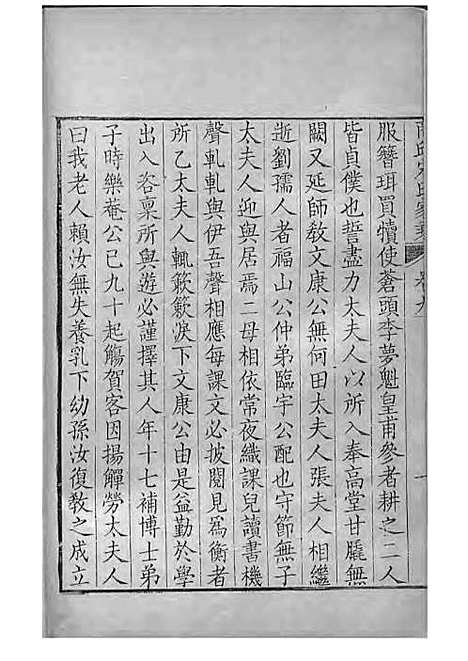 商丘宋氏家乘 卷九 一
服簪珥買犢使蒼頭李夢魁皇甫參者耕之二人
皆貞僕也誓盡力太夫人以所入奉高堂甘毳無
闕又延師敎文康公無何田太夫人張夫人相繼
逝劉孺人者福山公仲弟臨宇公配也守節無子
太夫人與居焉二母相依常夜織課兒讀書機
聲軋軋與伊吾聲相應每課文必披閱見爲衡者
所乙太夫人輒簌簌淚下文康公由是益勤於學
出入咨稟所與遊必謹擇其人年十七補博士弟
子時樂菴公已九十起觴賀客因揚觶勞太夫人
曰我老人賴汝無失養乳下幼孫汝復敎之成立